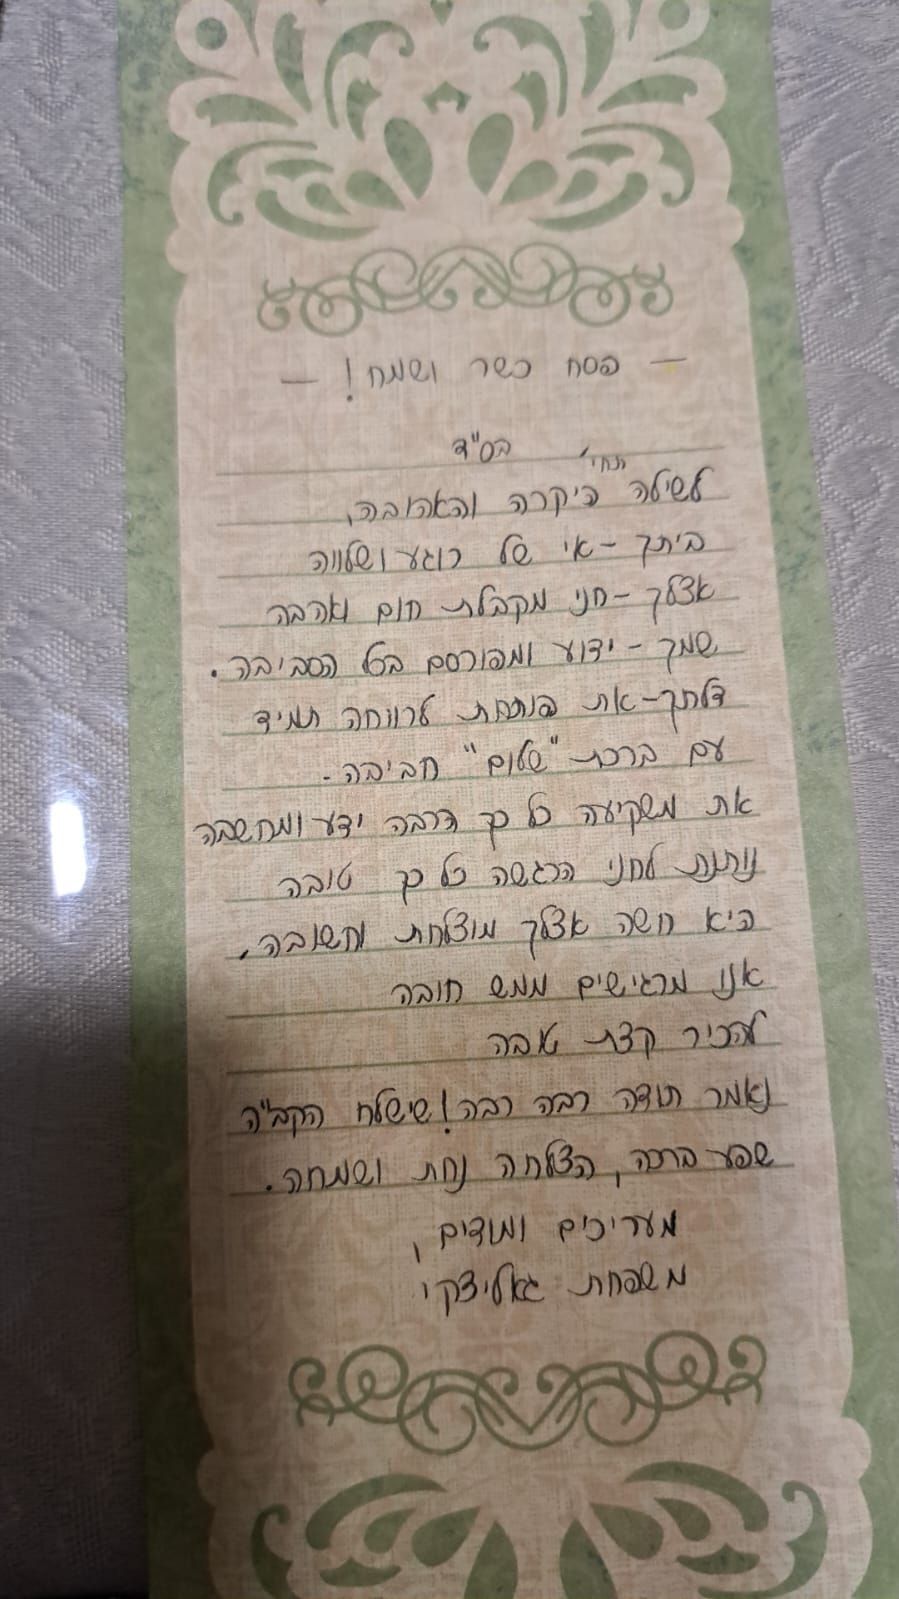 - פסח כשר ושמח! -
בס"ד
תחי'
לשילה היקרה והאהובה,
ביתך - אי של רוגע ושלווה
אצלך - חני מקבלת חום ואהבה
שמך - ידוע ומפורסם בכל הסביבה.
דלתך - את פותחת לרווחה תמיד
עם ברכת "שלום" חביבה.
את משקיעה כל כך הרבה ידע ומחשבה
נותנת לחני הרגשה כל כך טובה
היא חשה אצלך מוצלחת וחשובה.
אנו מרגישים ממש חובה
להכיר קצת טובה
נאמר תודה רבה רבה! שישלח הקב"ה
שפע ברכה, הצלחה נחת ושמחה.
מעריכים ומודים,
משפחת גאליצקי